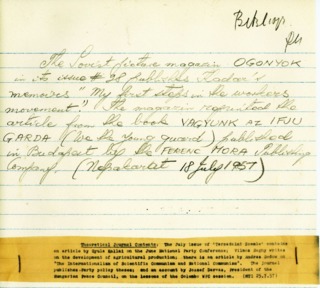 The Soviet picture magazin OGONYOK
in its issue # 28 publishes Kadar's
memoires "My first steps in the workers
movement." The magazin reprinted the
article from the book VAGYUNK AZ IFJU
GARDA (We the Young guard) published
in Budapest by the FERENC MORA Publishing
Company. (Nepakarat 18 July 1957)
Theoretical Journal Contents: The July issue of "Tarsadalmi Szemle" contains
an article by Gyula Kallai on the June National Party Conference; Vilmos Sagby writes
on the development of agricultural production; there is an article by Andras
"The Internationalism of Scientific Communism and National Communism". The Journal
publishes party policy theses; and an account by Jozsef Darvas, president of the
Hungarian Peace Council, on the lessons of the Colombo WPC session.